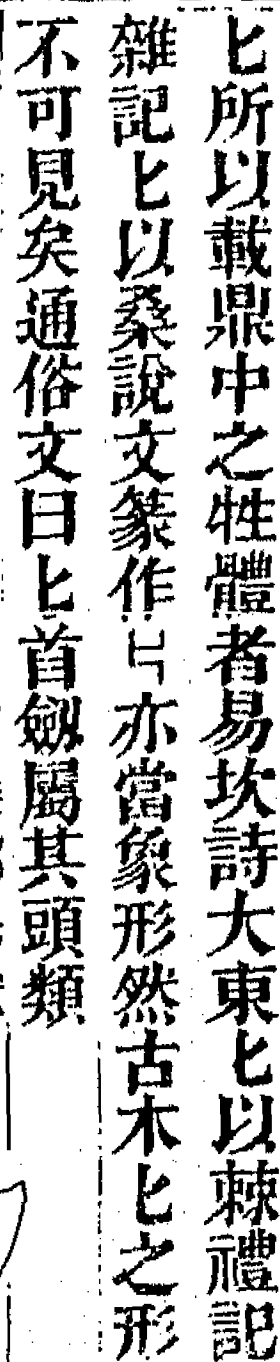 匕所以載鼎中之牲體者易坎詩大東匕以棘禮記
雜記匕以桑說文篆作亦當象形然古木匕之形
不可見矣通俗文曰匕首劔屬其頭類